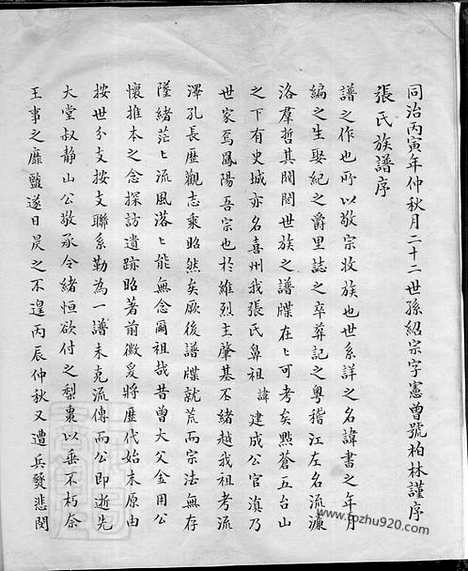 同治丙寅年仲秋月二十二世孫紹宗字憲曾號柏林謹序
張氏族譜序
譜之作也所以敬宗收族也世系詳之名諱書之年月
編之生娶紀之爵里誌之卒葬記之粵稽江左名流濂
洛群哲其閥閱世族之譜牒在在可考矣點蒼五台山
之下有史城亦名喜州我張氏鼻祖諱建成公官滇乃
世家焉鳳陽吾宗也於維烈主肇基丕緒越我祖考流
澤孔長歷觀志乘昭然矣厥後譜牒就荒而宗法無存
墜緒茫匕流風落匕能無念爾祖哉昔曾大父金用公
懷推本之念探訪遺跡昭著前徽爰將歷代始末原由
按世分支按支聯系勒為一譜未克流傳而公即逝先
大堂叔靜山公敬承令緒恒欲付之梨棗以垂不朽奈
王事之靡盬遂日昃之不遑丙辰仲秋又遭兵燹悲閱
www.tpzhu920.com